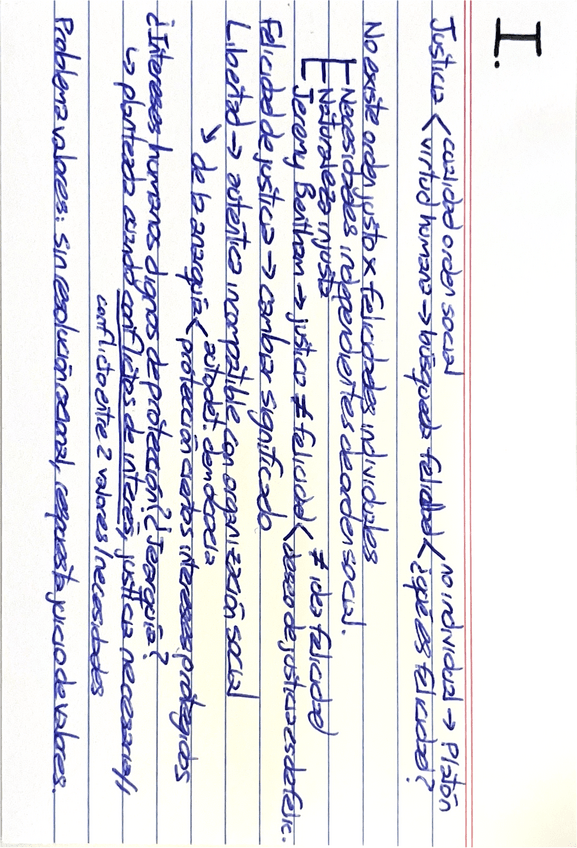 I.
Justicia < cualidad orden social
virtud humana → búsqueda felicidad < no individual → Platón
¿qué es felicidad?
No existe orden justo x felicidades individuales
Necesidades independientes de orden social.
Naturaleza injusta
Jeremy Bentham → justicia ≠ felicidad < ≠ idea felicidad
deseo de justicia es de felic.
Felicidad de justicia → cambiar significado
Libertad → autentica incompatible con organización social
↘ de la anarquía < autodet. democracia
protección ciertos intereses protegidos
¿Intereses humanos dignos de protección? ¿Jerarquía?
↳ planteada cuando conflictos de interés, justicia necesaria//
conflicto entre 2 valores/necesidades
Problema valores: sin resolución racional, respuesta juicio de valores.